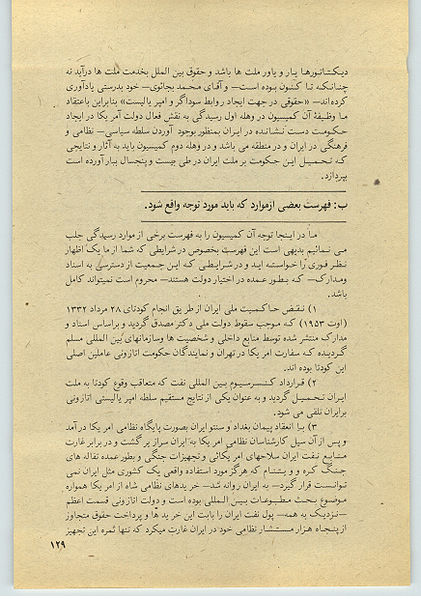 دیـکـتـاتـورهـا یـار و یاور ملت ها باشد و حقوق بین الملل بخدمت ملت ها درآید نه
چنـانـکـه تـا کـنـون بـوده اسـت— و آقـای مـحـمد بجائوی— خود بدرستی یادآوری
کرده اند— «حقوقی در جهت ایجاد روابط سوداگر و امپر یالیست» بنابراین باعتقاد
مـا وظـیـفـهٔ آن کمیسیون در وهله اول رسیدگی به نقش فعال دولت آمر یکا در ایجاد
حـکـومـت دسـت نـشـانـده در ایـران بمنظور بوجود آوردن سلطه سیاسی— نظامی و
فرهنگی در ایران و در منطقه می باشد و در وهله دوم کمیسیون باید به آثار و نتایجی
کـه تـحـمـیـل ایـن حکومت بر ملت ایران در طی بیست و پنجسال ببار آورده است
بپردازد.
ب: فهرست بعضی از موارد که باید مورد توجه واقع شود.
مـا در ایـنـجا توجه آن کمیسیون را به فهرست برخی از موارد رسیدگی جلب
مـی نـمـائیم بدیهی است این فهرست بخصوص در شرایطی که شما از ما یک اظهار
نـظـر فـوری را خـواسـتـه ایـد و در شـرایـطـی کـه ایـن جـمعیت از دسترسی به اسناد
ومـدارک— کـه بـطـور عـمـده در اختیار دولت هستند— محروم است نمیتواند کامل
باشد.
۱) نـقـض حـاکـمیت ملی ایران از طر یق انجام کودتای ۲۸ مرداد ۱۳۳۲
(اوت ۱۹۵۳) کـه مـوجـب سـقوط دولت ملی دکتر مصدق گردید و براساس اسناد و
مدارک منتشر شده توسط منابع داخلی و شخصیت ها وسازمانهای بین المللی مسلم
گـردیـده کـه سـفارت امر یکا در تهران و نمایندگان حکومت اتازونی عاملین اصلی
این کودتا بوده اند.
۲) قـرارداد کـنـسـرسـیـوم بـیـن المللی نفت که متعاقب وقوع کودتا به ملت
ایـران تـحـمـیـل گردید و به عنوان یکی از نتایج مستقیم سلطه امپر یالیستی اتازونی
برایران تلقی می شود.
۳) بـا انـعقاد پیمان بغداد و سنتو ایران بصورت پایگاه نظامی امر یکا در آمد
و پس از آن سیل کارشناسان نظامی امر یکا به ایران سراز یر گشت و در برابر غارت
مـنـابـع نـفت ایران سلاحهای امر یکائی و تجهیزات جنگی و بطور عمده تفاله های
جـنـگ کـره و و یـتـنـام که هرگز مورد استفاده واقعی یک کشوری مثل ایران نمی
تـوانـست قرار گیرد— به ایران روانه شد— خر یدهای نظامی شاه از امر یکا همواره
مـوضـوع بـحـث مـطـبـوعـات بـیـن الـمـللی بوده است و دولت اتازونی قسمت اعظم
—نـزدیـک به همه— پول نفت ایران را بابت این خر ید ها و پرداخت حقوق متجاوز
از پنجـاه هـزار مـسـتـشـار نظامی خود در ایران غارت میکرد که تنها ثمره این تجهیز
۱۲۹